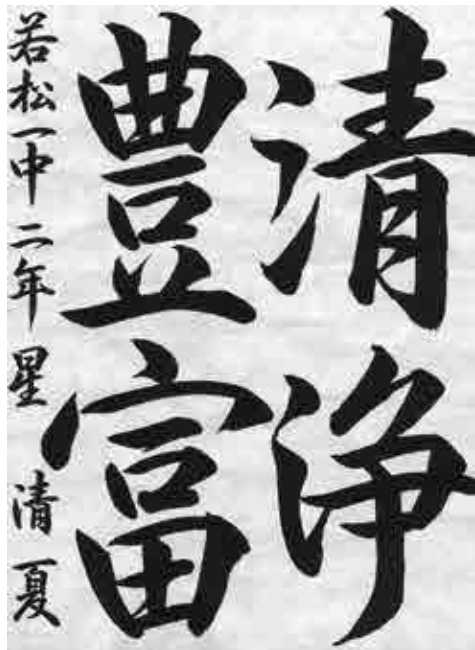 清浄
豊富
若松一中二年 星 清夏